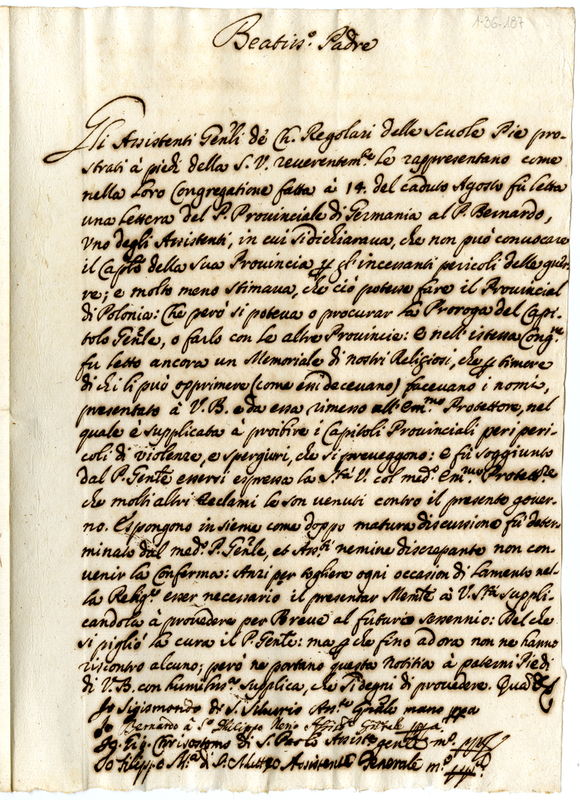 1-36-187
Beatiss.º Padre
Gli Assistenti Gen'li de' Ch. Regolari delle Scuole Pie pro-
strati à piedi della S. V. reverentem.te le rappresentano come
nella loro Congregatione fatta à 14. del caduto Agosto fù letta
una lettera del P. Provinciale di Germania al P. Bernardo,
uno degli Assistenti, in cui si dichiarava, che non può convocare
il Cap'lo della sua Provincia p gl'incessanti pericoli delle guer-
re; e molto meno stimava, che ciò potesse fare il Provincial
di Polonia: Che però si poteva o procurar la Proroga del Capi-
tolo Gen'le, o farlo con le altre Provincie: e nell'istessa Cong.ne
fù letto ancora un Memoriale di nostri Religiosi, che p timore
di chi li può opprimere (come essi dicevano) tacevano i nomi,
presentato à V. B. e da essa rimesso all'Em.mo Protettore, nel
quale è supplicata à proibire i Capitoli Provinciali per i peri-
coli di violenze, e spergiuri, che si preveggono: e fù soggiunto
dal P. Gen'le essersi espressa la S.tà V. col med.º Em.mo Protett.re
che molti altri reclami le son venuti contro il presente gover-
no. Espongono insieme come doppo matura discussione fù deter-
minato dal med.º P. Gen'le, et Ass.ti nemine discrepante non con-
venir la Conferma: Anzi per togliere ogni occasion di lamento nel-
la Relig.e esser necessario il presentar Mem'le à V. S.tà suppli-
candola à provedere per Breve al futuro sessennio: Del che
si pigliò la cura il P. Gen'le: ma p che fino ad ora non ne hanno
riscontro alcuno; però ne portano questa notitia à paterni Piedi
di V. B. con humiliss.a supplica, che si degni di provedere. Quã
Io Sigismondo di S. Silverio Ass.te Gn'rale mano ppa
Io Bernardo à S.to Philippo Nerio Assist. Gn'rale ppa
Io Gio. Crisostomo di S. Paolo Assist.e gen'le m.º pp.a
Io Filippo M.a di S. Matteo Assistente Generale m.º pp.a